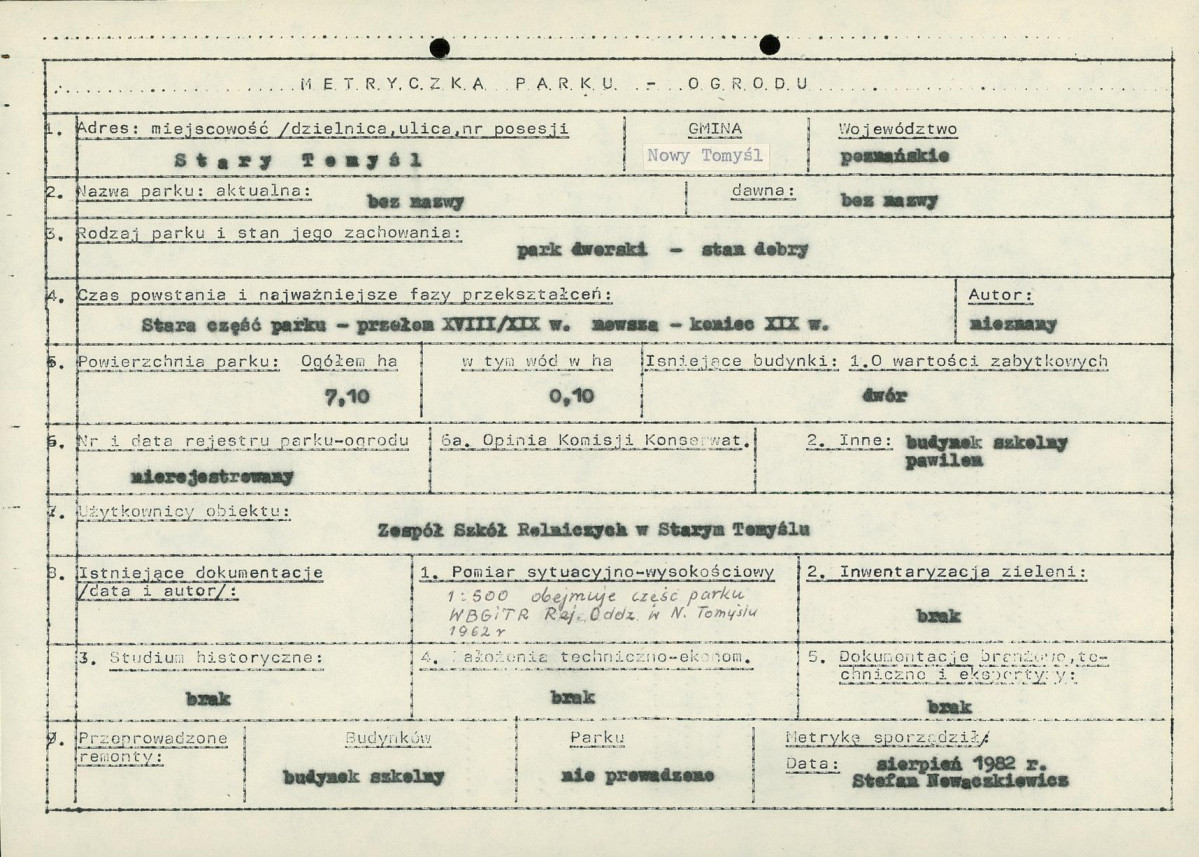 METRYCZKA PARKU - OGRODU
1. Adres: miejscowość /dzielnica,ulica,nr posesji GMINA Województwo
Stary Tomyśl Nowy Tomyśl poznańskie
2. Nazwa parku: aktualna: bez nazwy dawna: bez nazwy
3. Rodzaj parku i stan jego zachowania:
park dworski - stan dobry
4. Czas powstania i najważniejsze fazy przekształceń: Autor:
Stara część parku - przełom XVIII/XIX w. nowsza - koniec XIX w. nieznany
5. Powierzchnia parku: Ogółem ha w tym wód w ha Isniejące budynki: 1.O wartości zabytkowych
7,10 0,10 dwór
6. Nr i data rejestru parku-ogrodu 6a. Opinia Komisji Konserwat. 2. Inne: budynek szkolny
pawilon
nierejestrowany
7. Użytkownicy obiektu:
Zespół Szkół Rolniczych w Starym Tomyślu
8. Istniejące dokumentacje 1. Pomiar sytuacyjno-wysokościowy 2. Inwentaryzacja zieleni:
/data i autor/: 1:500 obejmuje cześć parku
WBGiTR Rej. Oddz. w N. Tomyślu brak
1962 r
3. Studium historyczne: 4. Założenia techniczno-ekonom. 5. Dokumentacje branżowo,te-
chniczno i ekspertyzy:
brak brak brak
9. Przeprowadzone Budynków Parku Metrykę sporządził:
remonty: Data: sierpień 1982 r.
budynek szkolny nie prowadzono Stefan Nowaczkiewicz